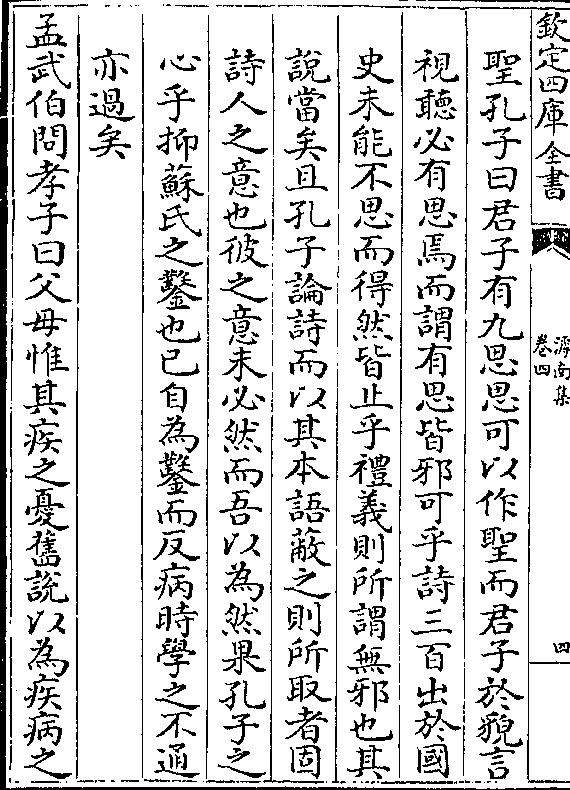 欽定四庫全書
滹南集
卷四
四
聖孔子曰君子有九思思可以作聖而君子於貌言
視聽必有思焉而謂有思皆邪可乎詩三百出於國
史未能不思而得然皆止乎禮義則所謂無邪也其
說當矣且孔子論詩而以其本語蔽之則所取者固
詩人之意也彼之意未必然而吾以為然果孔子之
心乎抑蘇氏之鑿也已自為鑿而反病時學之不通
亦過矣
孟武伯問孝子曰父母惟其疾之憂舊說以為疾病之